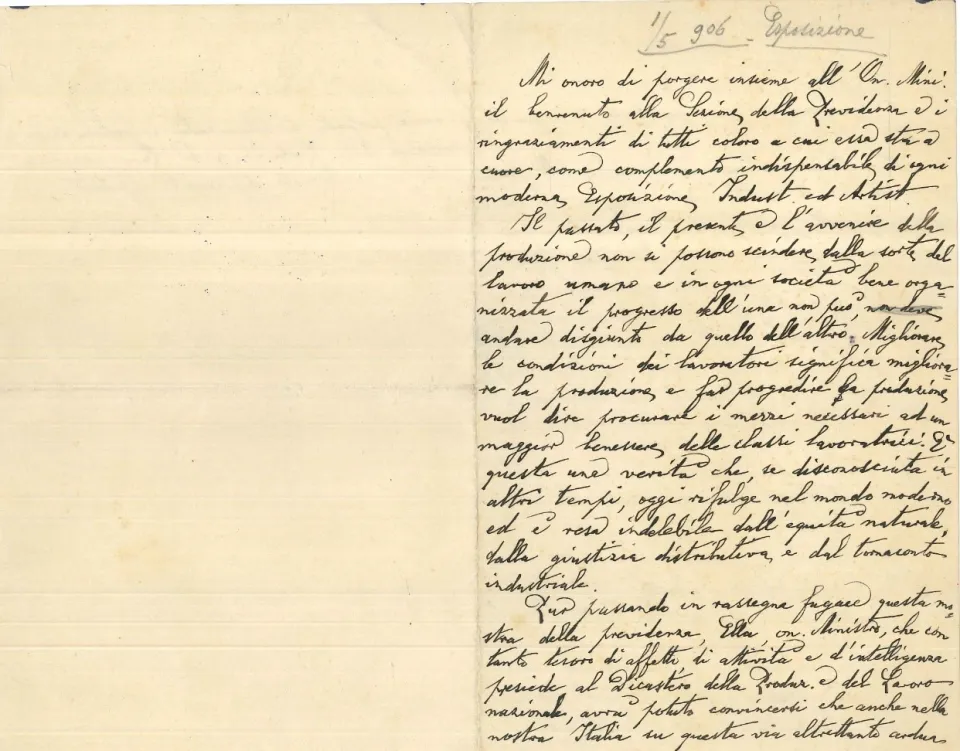 1/5 906 - Esposizione
Mi onoro di porgere insieme all'On. Mini.
il benvenuto alla Sezione della Previdenza e i
ringraziamenti di tutti coloro a cui essa sta a
cuore, come complemento indispensabile di ogni
moderna Esposizione Indust. ed Artist.
Il passato, il presente e l'avvenire della
produzione non si possono scindere dalla sorte del
lavoro umano e in ogni società bene orga=
nizzata il progresso dell'una non può, non deve
andare disgiunto da quello dell'altro. Migliorare
le condizioni dei lavoratori significa migliora=
re la produzione e far progredire la produzione
vuol dire procurare i mezzi necessari ad un
maggior benessere delle classi lavoratrici. E'
questa una verità che, se disconosciuta in
altri tempi, oggi rifulge nel mondo moderno
ed è resa indelebile dall'equità naturale,
dalla giustizia distributiva e dal tornaconto
industriale.
Pur passando in rassegna fugace questa mo=
stra della previdenza, Ella, on. Ministro, che con
tanto tesoro di affetti di attività e d'intelligenza
presiede al Dicastero della Produz. e del Lavoro
nazionale, avrà potuto convincersi che anche nella
nostra Italia su questa via altrettanto ardua